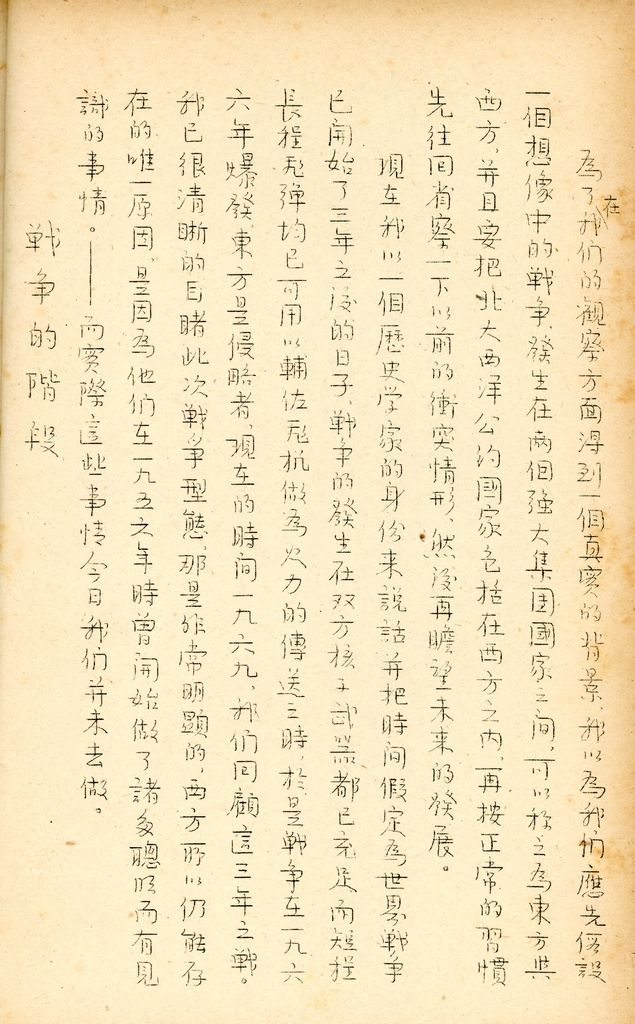 為了在我们的觀察方面得到一個真实的背景，我以為我们應先假設
一個想像中的戰争，發生在兩個强大集团國家之间，可以称之為東方與
西方，并且要把北大西洋公约國家包括在西方之内，再按正常的習慣
先往回省察一下以前的衝突情形，然後再瞻望未来的發展。
現在我以一個歷史学家的身份来説話并把時间假定為世界戰争
已開始了三年之後的日子，戰争的發生在双方核子武器都已充足而短程
長程飛弹均已可用以輔佐飛机做為火力的傳送之時，於是戰争在一九六
六年爆發東方是侵略者，現在的時间一九六九，我们回顧這三年之戰。
我已很清晰的目睹此次戰争型態，那是非常明顯的，西方所以仍能存
在的唯一原因，是因為他们在一九五六年時曾開始做了諸多聰明而有見
識的事情。——而實際這些事情今日我们并未去做。
戰争的階段